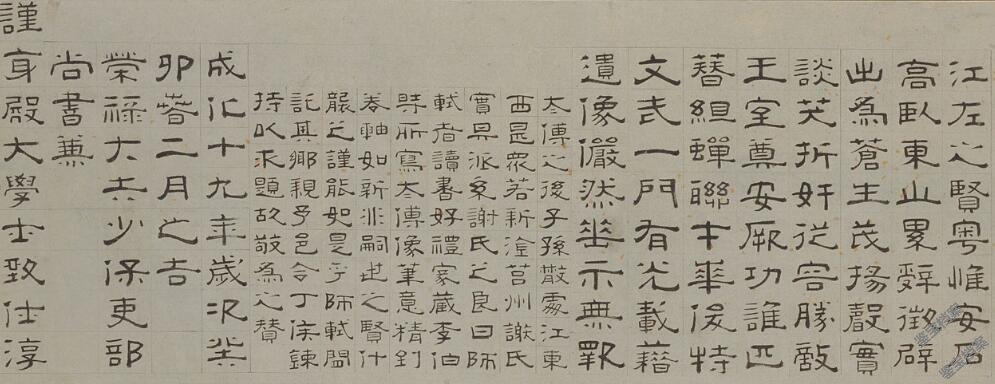 江左之賢粵惟安石
高臥東山累辭徵辟
出為蒼生茂揚聲實
談笑折奸從容勝敵
王室奠安厥功誰匹
簪組蟬聯才華俊特
文武一門有光載籍
遺像儼然垂示無斁
太傅之後子孫散處江東
西衆若新淦莒州謝氏
實其派系謝氏之良曰師
軾者讀書好禮家藏李伯
時所寫太傅像筆意精到
卷軸如新非嗣世之賢什
襲之謹能如是乎師軾因
託其鄉親予邑令丁侯鍊
持以求題故敬為之贊
成化十九年歲次癸
卯春二月之吉
榮祿大夫少保吏部
尚書兼
謹身殿大學士致仕淳